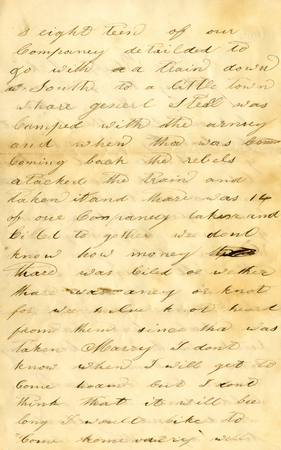 s eight teen of our
Companey detailded to
go with a a train down
South to a little town
whare generl Steel was
Camped with the armey
and when tha was Com
Coming back the rebels
atacked the train and
taken it and thare was 14
of our Companey taken and
Cild to gether we dont
know how money
thare was Cild or wether
thare was aney or knot
for we have knot heard
from them since tha was
taken Marry I dont
know when I will get to
Come hoam but I dont
think that it will bee
long I would like to
Come home varry well